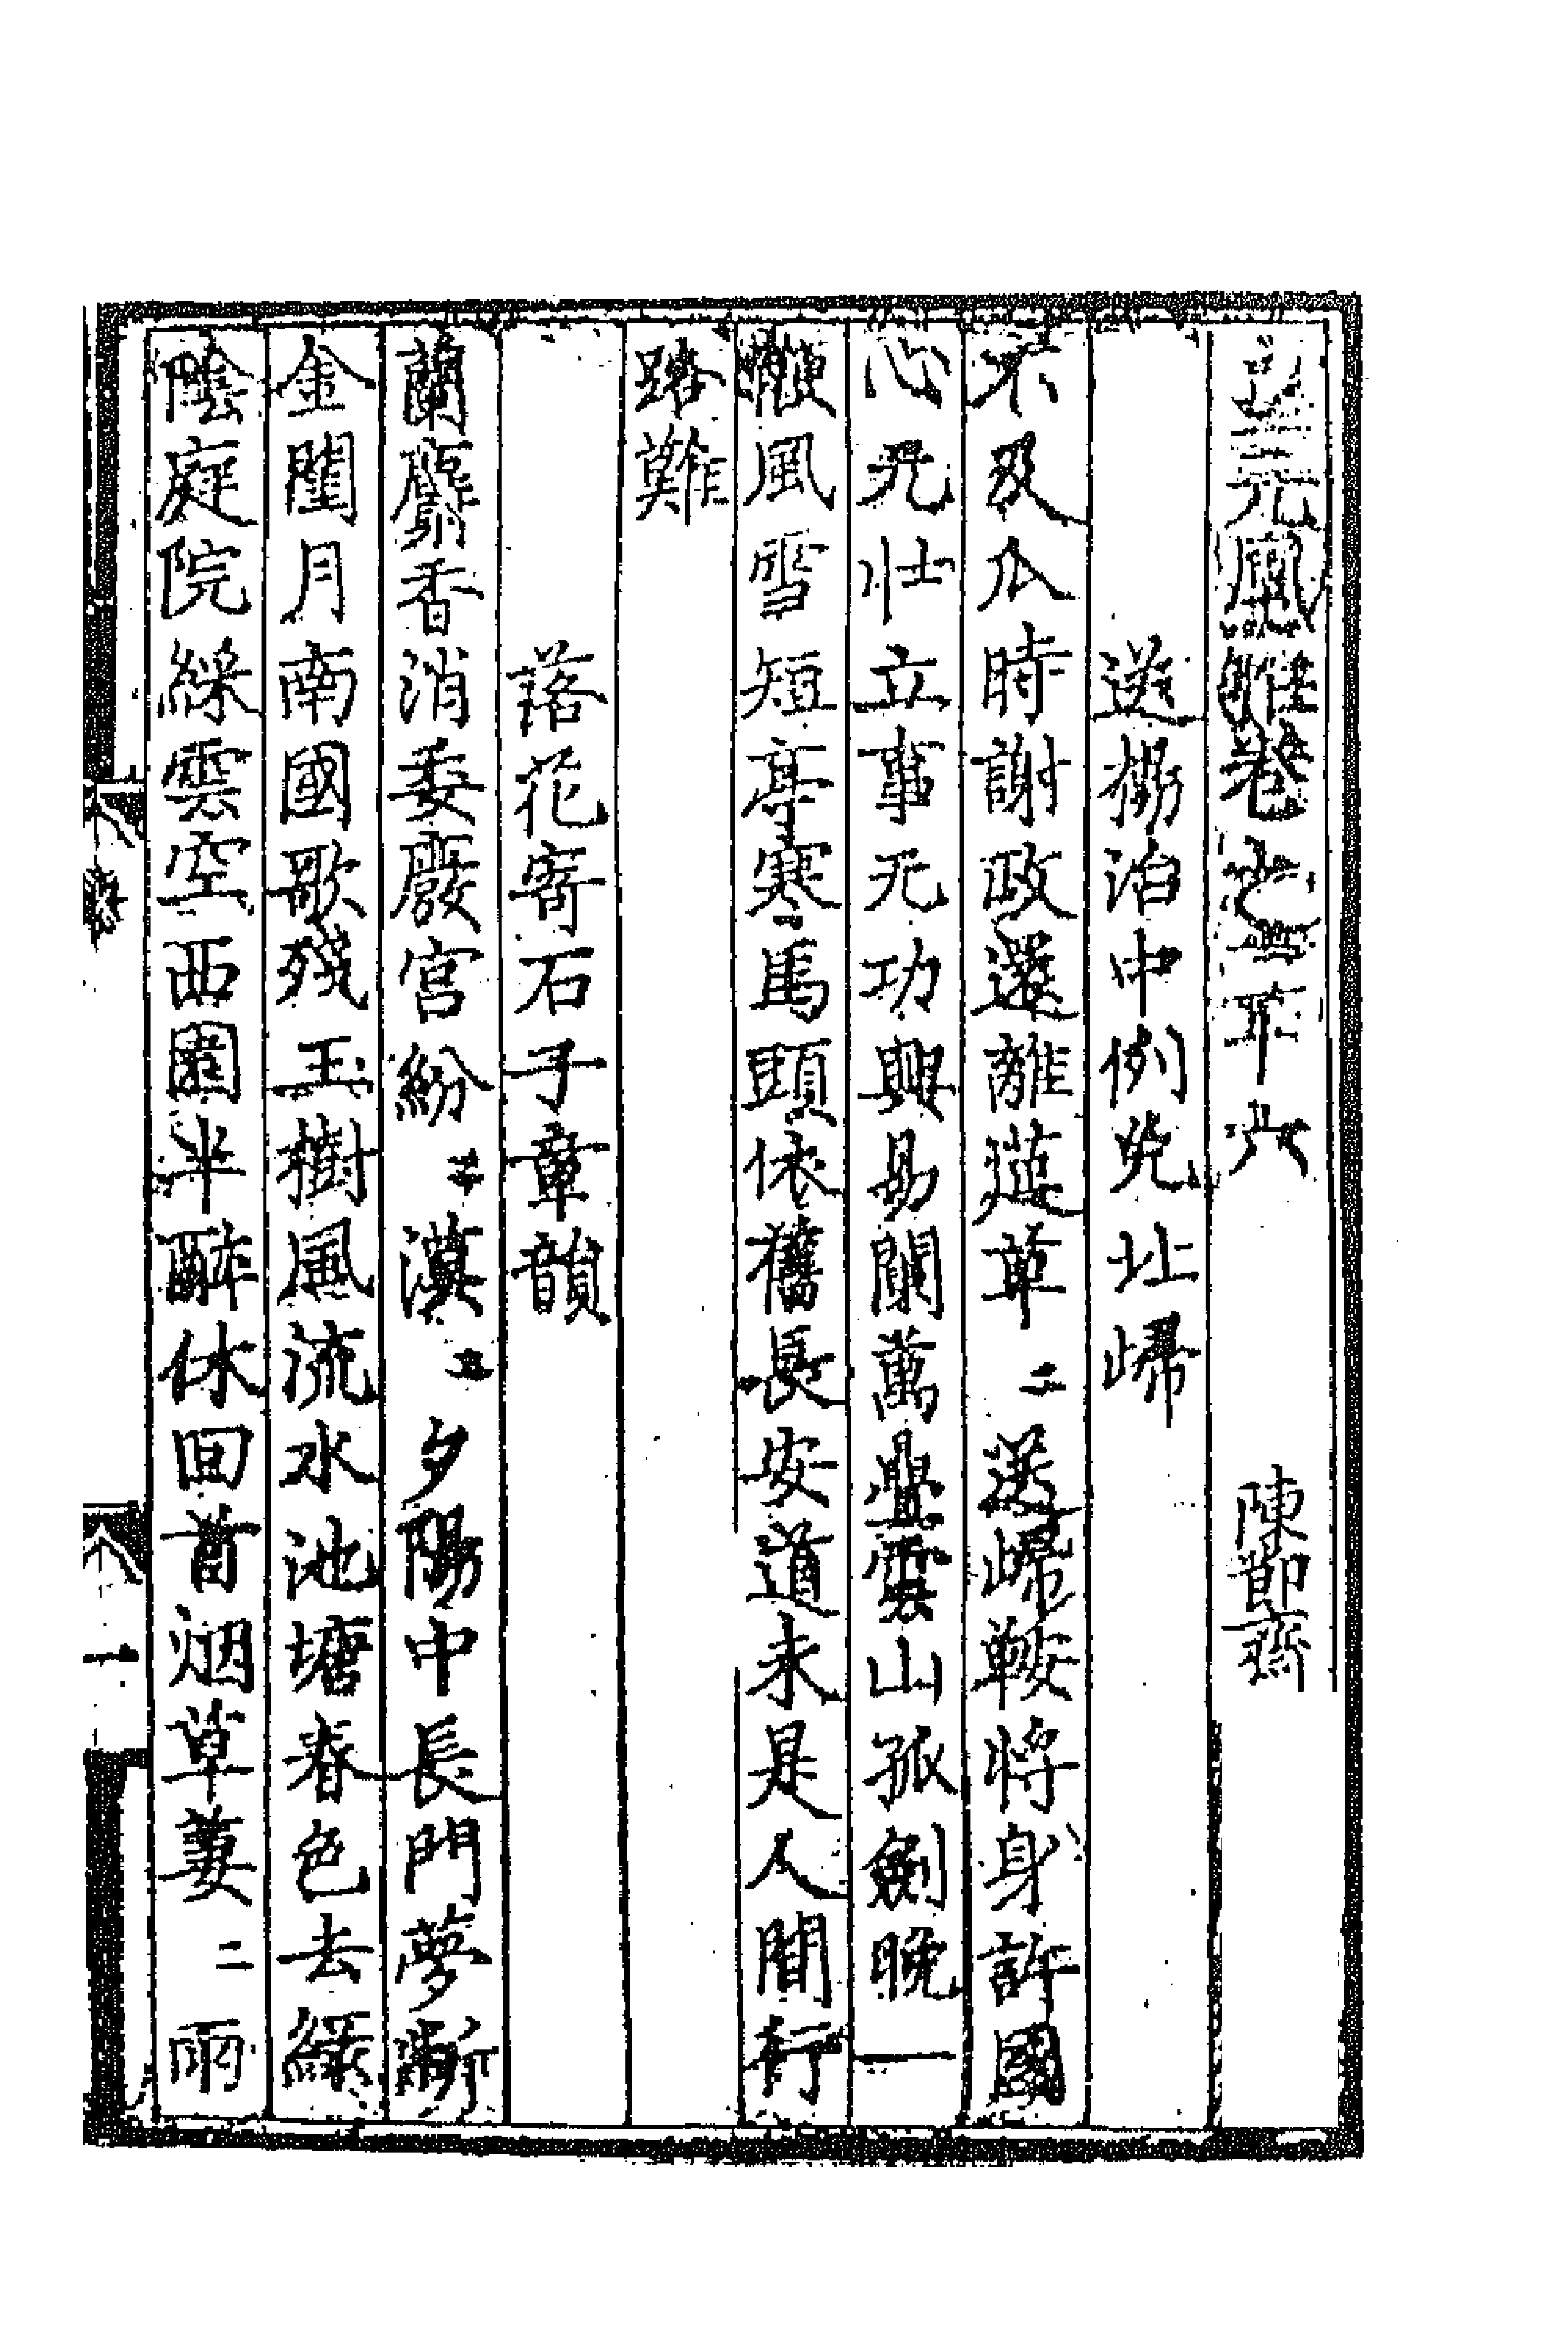 皇元風雅卷之二十六　陳節齋
送楊治中例免北歸
不及瓜時謝政還離筵草二送歸鞍將身許國
心尤壮立事无功興易闌萬疊雲山孤劍晚一
鞭風雪短亭寒馬頭依舊長安道未是人間行
路難
落花寄石子章韻
蘭麝香消委廢宮紛二漠二夕陽中長門夢斷
金閨月南國歌殘玉樹風流水池塘春色去緑
陰庭院綵雲空西園半醉休回首烟草萋二雨
一